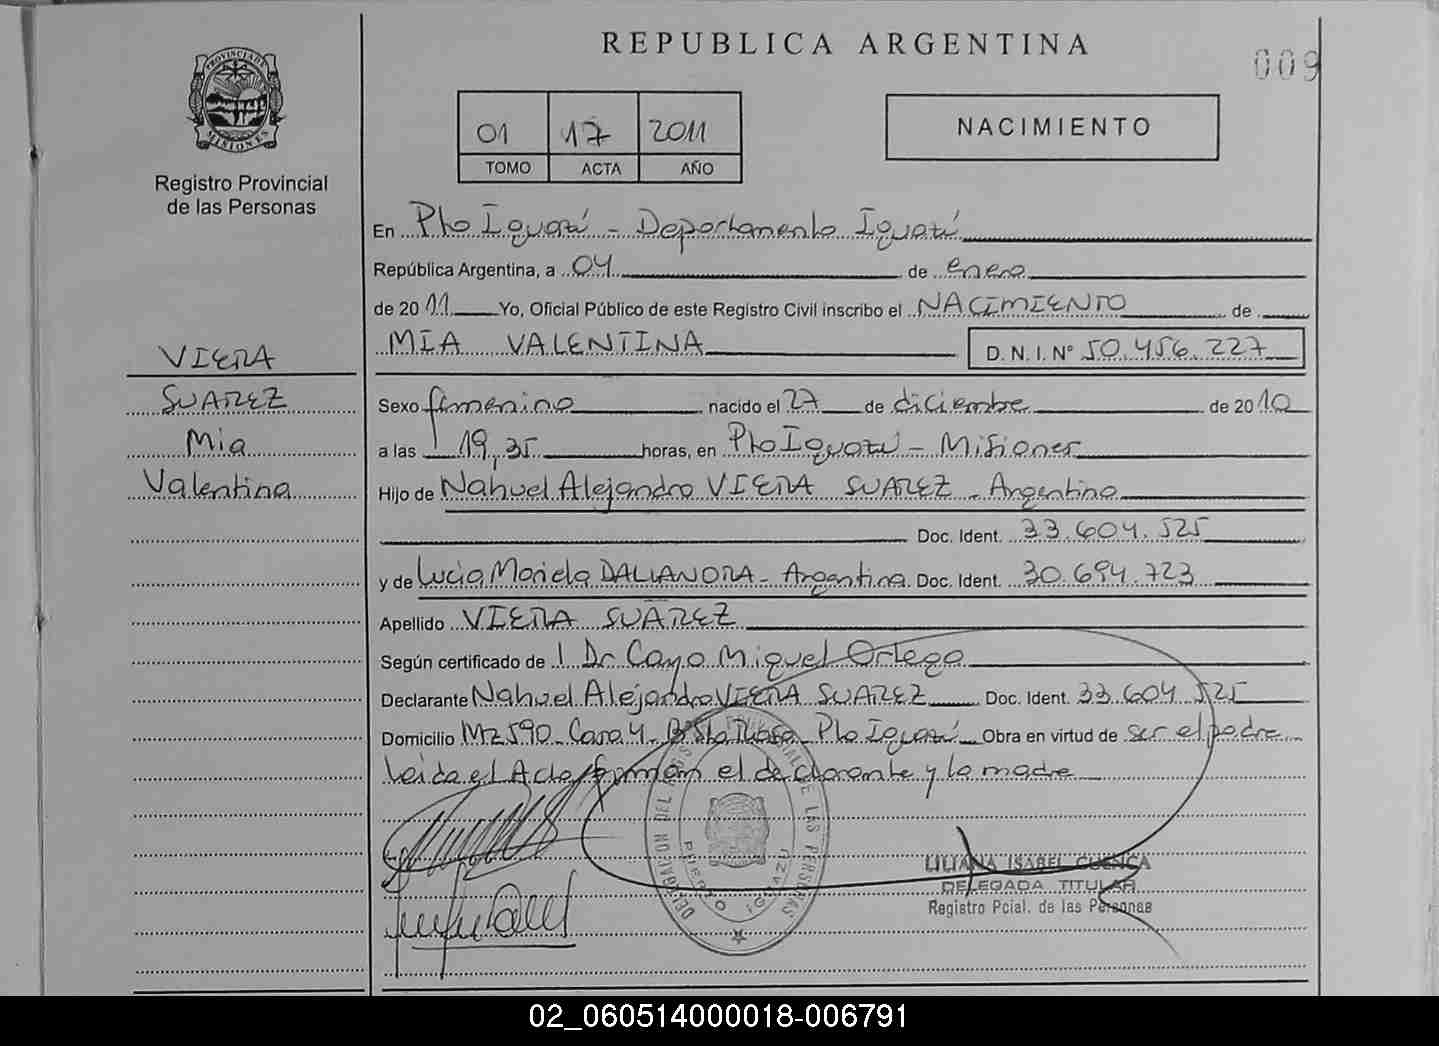 REPUBLICA ARGENTINA
009
PROVINCIA DE
MISIONES
Registro Provincial
de las Personas
01 17 2011
TOMO ACTA AÑO
NACIMIENTO
En Pto Iguazú - Departamento Iguazú
República Argentina, a 04 de enero
de 2011 Yo, Oficial Público de este Registro Civil inscribo el NACIMIENTO de
MÍA VALENTINA D. N. I. Nº 50.456.227
VIERA
SUAREZ
Mia
Valentina
Sexo femenino nacido el 27 de diciembre de 2010
a las 19,35 horas, en Pto Iguazú - Misiones
Hijo de Nahuel Alejandro VIERA SUAREZ - Argentino
Doc. Ident. 33.604.525
y de Lucia Mariela DALLANORA - Argentina Doc. Ident. 30.694.723
Apellido VIERA SUÁREZ
Según certificado de Dr Cayo Miguel Ortega
Declarante Nahuel Alejandro VIERA SUAREZ Doc. Ident. 33.604.525
Domicilio Mz 590 - Casa 4 - Pto Iguazú Obra en virtud de ser el padre
Leida el Acta firman el declarante y la madre
DE LAS PERSONAS
PUERTO IGUAZU
LILIANA ISABEL CUENCA
DELEGADA TITULAR
Registro Pcial. de las Personas
02_060514000018-006791